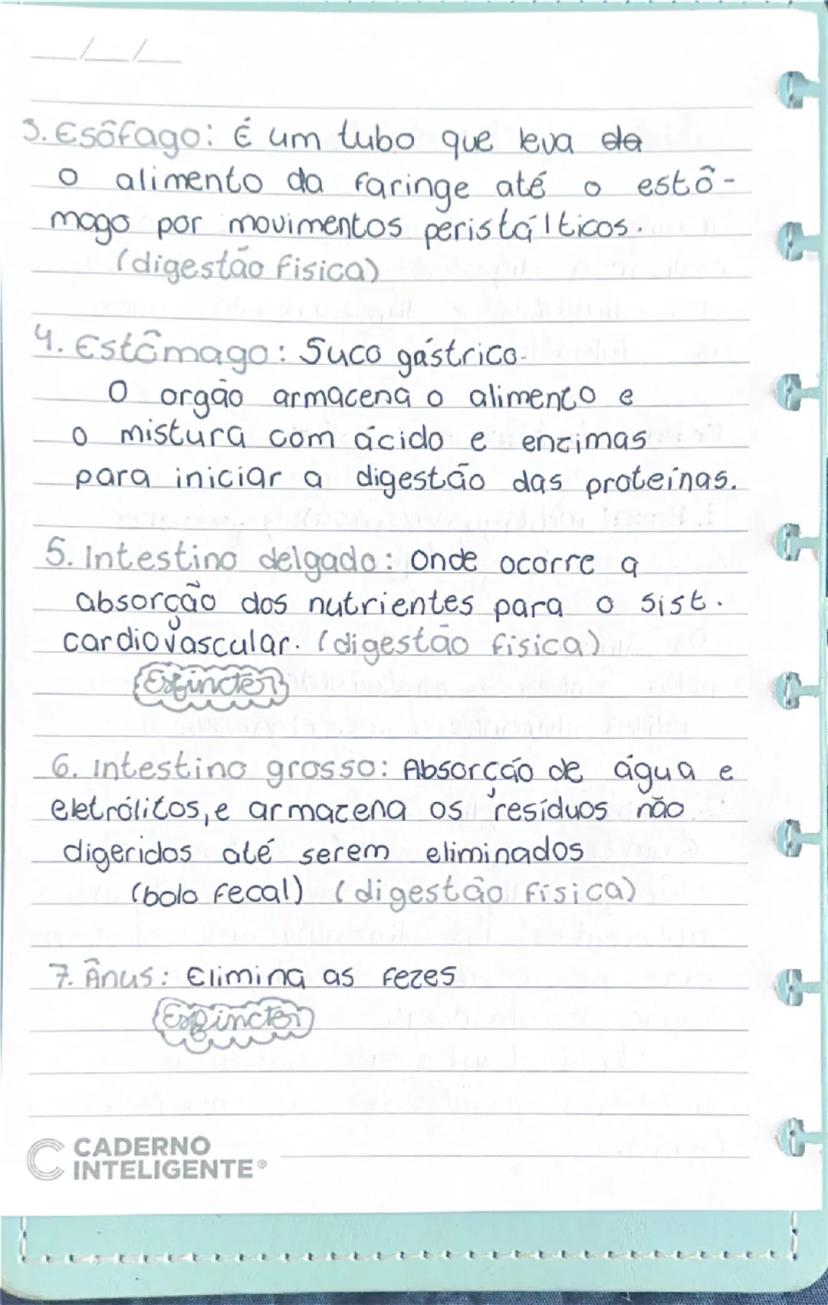 3. Esôfago: É um tubo que leva da
o alimento da faringe até o estô-
mago por movimentos peristálticos.
(digestão física)
4. Estômago: Suco gástrico.
O orgão armacena o alimento e
o mistura com ácido e enzimas
para iniciar a digestão das proteínas.
5. Intestino delgado: Onde ocorre a
absorção dos nutrientes para o sist.
cardiovascular. (digestão física)
Esfincter
6. Intestino grosso: Absorção de água e
eletrólitos, e armazena os resíduos não
digeridos até serem eliminados
(bolo fecal) (digestão física)
7. Ânus: Elimina as fezes
Esfincter
CADERNO
INTELIGENTE®